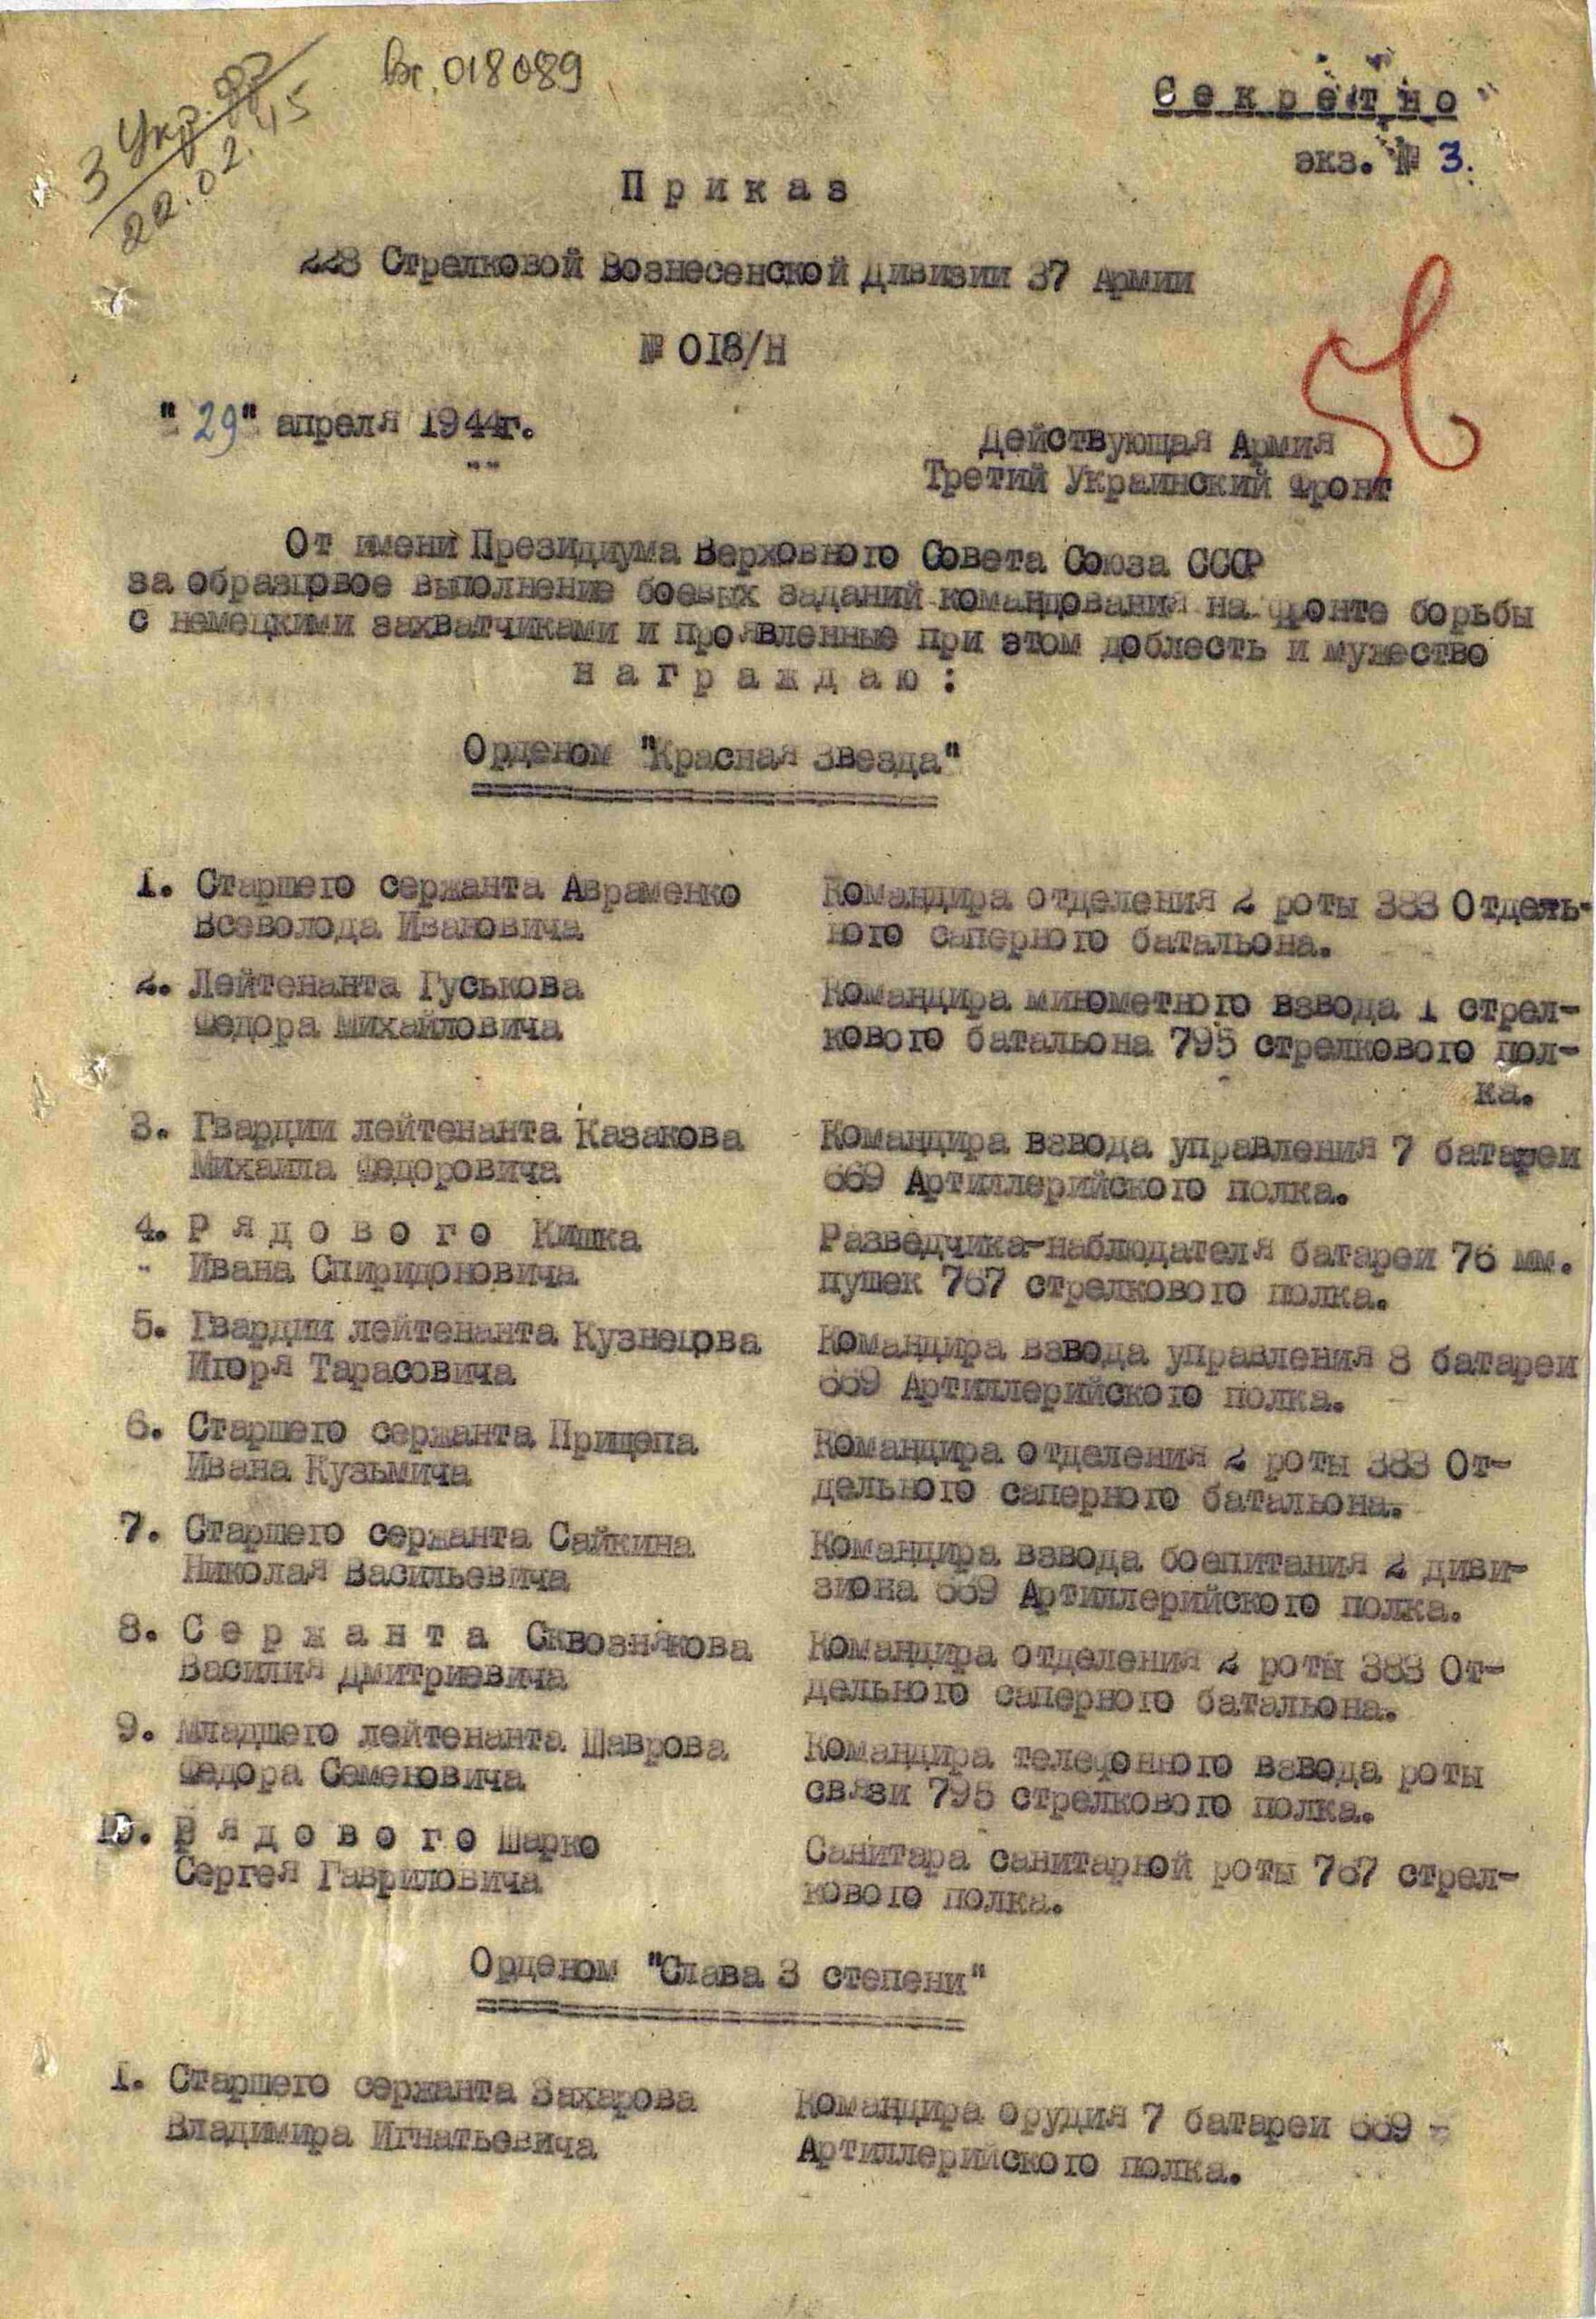 Вх. 018089
3 Укр. фр
22.02.45
Секретно
экз. № 3.
Приказ
228 Стрелковой Вознесенской Дивизии 37 Армии
№ 018/Н
"29" апреля 1944г.
Действующая Армия
Третий Украинский Фронт
56
От имени Президиума Верховного Совета Союза ССР
за образцовое выполнение боевых заданий командования на фронте борьбы
с немецкими захватчиками и проявленные при этом доблесть и мужество
награждаю:
Орденом "Красная Звезда"
1. Старшего сержанта Авраменко
Всеволода Ивановича
Командира отделения 2 роты 383 Отдель-
ного саперного батальона.
2. Лейтенанта Гуськова
Федора Михайловича
Командира минометного взвода 1 стрел-
кового батальона 795 стрелкового пол-
ка.
3. Гвардии лейтенанта Казакова
Михаила Федоровича
Командира взвода управления 7 батареи
669 Артиллерийского полка.
4. Рядового Кишка
Ивана Спиридоновича
Разведчика-наблюдателя батареи 76 мм.
пушек 767 стрелкового полка.
5. Гвардии лейтенанта Кузнецова
Игоря Тарасовича
Командира взвода управления 8 батареи
669 Артиллерийского полка.
6. Старшего сержанта Прищепа
Ивана Кузьмича
Командира отделения 2 роты 383 От-
дельного саперного батальона.
7. Старшего сержанта Сайкина
Николая Васильевича
Командира взвода боепитания 2 диви-
зиона 669 Артиллерийского полка.
8. Сержанта Сквознякова
Василия Дмитриевича
Командира отделения 2 роты 383 От-
дельного саперного батальона.
9. Младшего лейтенанта Шаврова
Федора Семеновича
Командира телефонного взвода роты
связи 795 стрелкового полка.
10. Рядового Шарко
Сергея Гавриловича
Санитара санитарной роты 767 стрел-
кового полка.
Орденом "Слава 3 степени"
1. Старшего сержанта Захарова
Владимира Игнатьевича
Командира орудия 7 батареи 669 -
Артиллерийского полка.